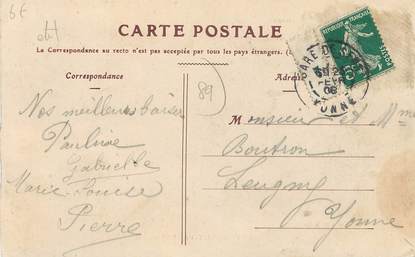 6€
CARTE POSTALE
La Correspondance au recto n'est pas acceptée par tous les pays étrangers.
Correspondance
Adresse
89
Nos meilleurs baisers
Pauline
Gabrielle
Marie-Louise
Pierre
Monsieur et Mme
Boutron
Leugny
Yonne
REPUBLIQUE FRANÇAISE
POSTES
GARE
YONNE